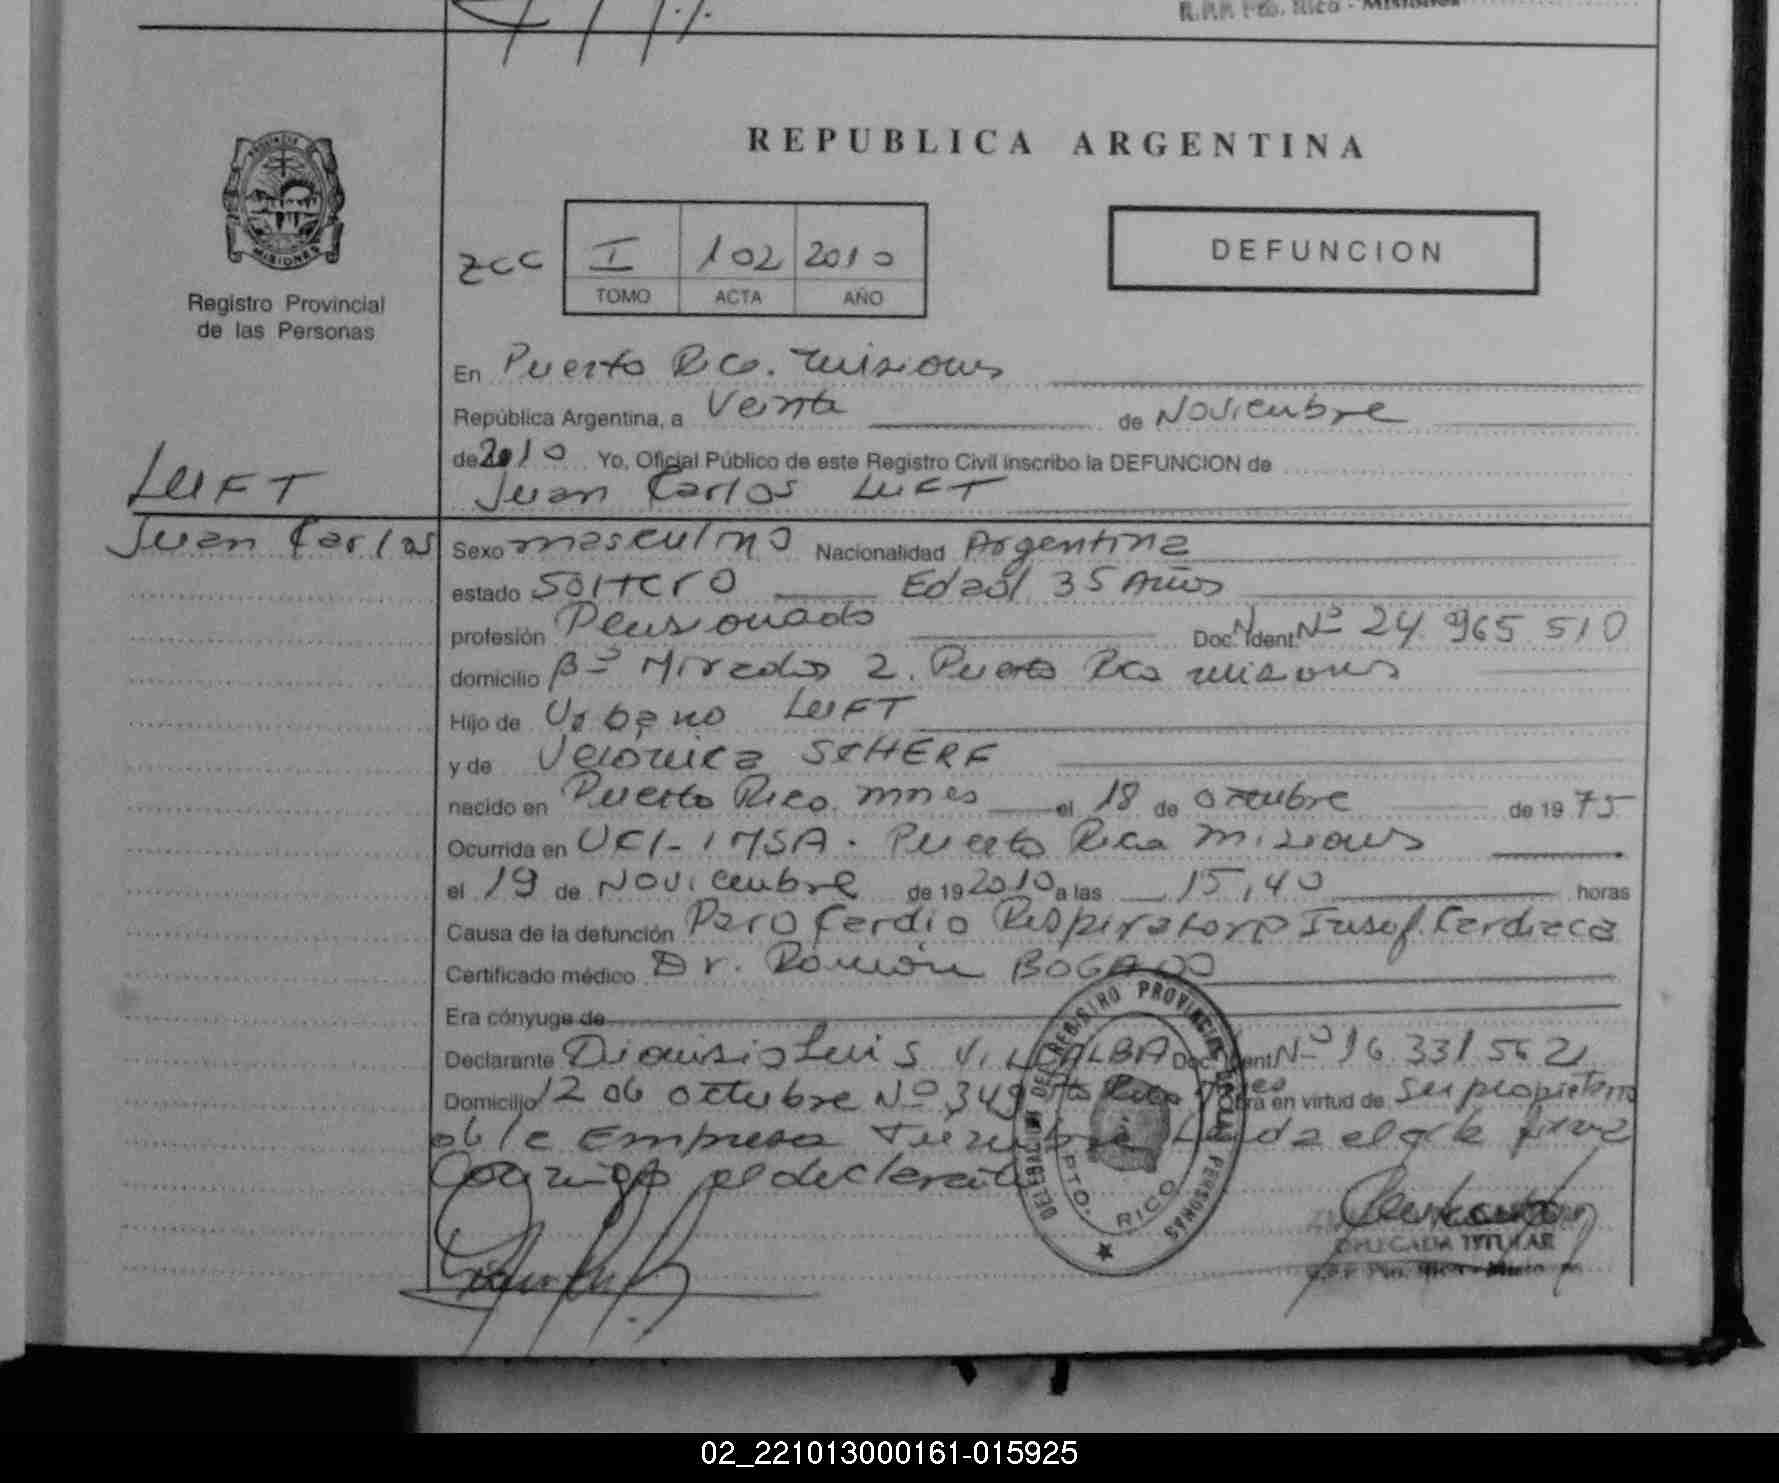 R.P.P. Pto. Rico - Misiones
REPUBLICA ARGENTINA
PROVINCIA DE
MISIONES
Registro Provincial
de las Personas
zcc
I 102 2010
TOMO ACTA AÑO
DEFUNCION
En Puerto Rico. Misiones
República Argentina, a Veinte de Noviembre
de 2010 Yo, Oficial Público de este Registro Civil inscribo la DEFUNCION de
Juan Carlos LUFT
LUFT
Juan Carlos
Sexo masculino Nacionalidad Argentina
estado Soltero Edad 35 Años
profesión Pensionado Doc. N. Ident. Nº 24 965 510
domicilio Bº Mirador 2. Puerto Rico Misiones
Hijo de Urbano LUFT
y de Veronica SCHERF
nacido en Puerto Rico. Mnes el 18 de octubre de 19 75
Ocurrida en UCI-IMSA. Puerto Rico Misiones
el 19 de Noviembre de 19 2010 a las 15,40 horas
Causa de la defunción Paro Cardio Respiratorio Insuf. Cardiaca
Certificado médico Dr. Ramón BOGADO
Era cónyuge de
Declarante Dionisio Luis VILLALBA Doc. Ident. Nº 16 331 562
Domicilio 12 de octubre Nº 349 Pto Rico Mnes Obra en virtud de ser propietario
de la Empresa Funebre firma
Conmigo el declarante
DELEGACION DEL REGISTRO PROVINCIAL DE LAS PERSONAS
PTO. RICO
DELEGADA TITULAR
R.P.P. Pto. Rico - Misiones
02_221013000161-015925